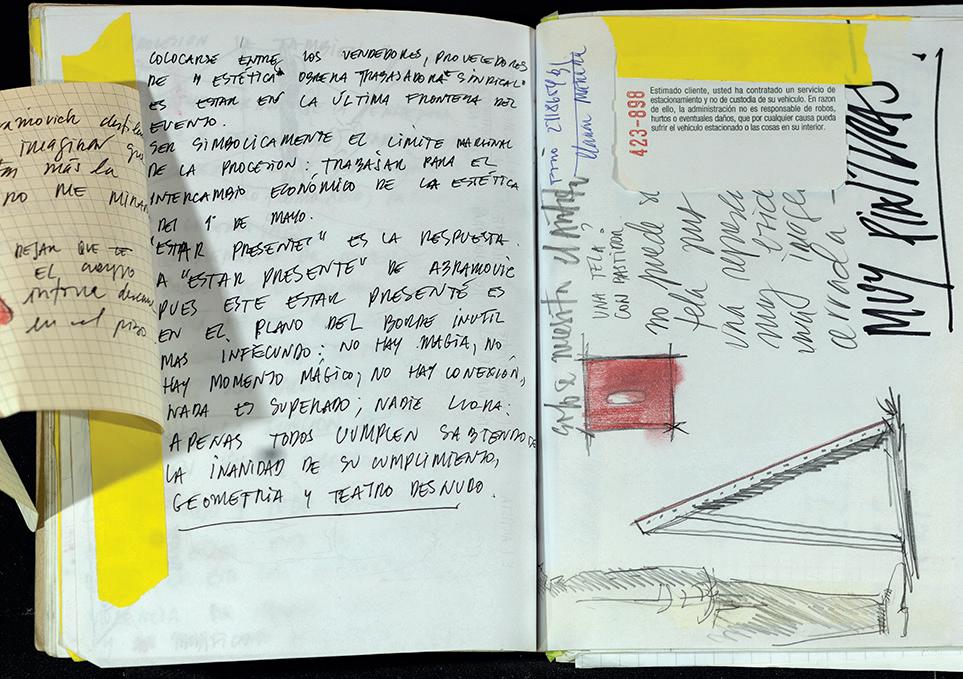 ramovich
imaginar que
más la
NO ME MIRAN
DEJAR QUE
EL cuerpo
en el piso
COLOCARSE ENTRE LOS VENDEDORES, PROVEEDORES
DE "ESTÉTICA" OBRERA "TRABAJADORA" SINDICAL"
ES ESTAR EN LA ÚLTIMA FRONTERA DEL
EVENTO.
SER SIMBOLICAMENTE EL LIMITE MARGINAL
DE LA PROCESION: TRABAJAR PARA EL
INTERCAMBIO ECONÓMICO DE LA ESTÉTICA
DEL 1° DE MAYO.
"ESTAR PRESENTE" ES LA RESPUESTA
A "ESTAR PRESENTE" DE ABRAMOVIC
PUES ESTE ESTAR PRESENTE ES
EN EL PLANO DEL BORDE INUTIL
MAS INFECUNDO: NO HAY MAGIA, NO
HAY MOMENTO MÁGICO, NO HAY CONEXIÓN,
NADA ES SUPERADO; NADIE LLORA:
APENAS TODOS CUMPLEN SABIENDO DE
LA INANIDAD DE SU CUMPLIMIENTO,
GEOMETRIA Y TEATRO DESNUDO.
423-898
Estimado cliente, usted ha contratado un servicio de
estacionamiento y no de custodia de su vehículo. En razon
de ello, la administración no es responsable de robos,
hurtos o eventuales daños, que por cualquier causa pueda
sufrir el vehículo estacionado o las cosas en su interior.
UNA TELA,
CON BASTIDOR
no puede s
tela pues
una represa
muy
imagen
cerrada
MUY PINTURAS